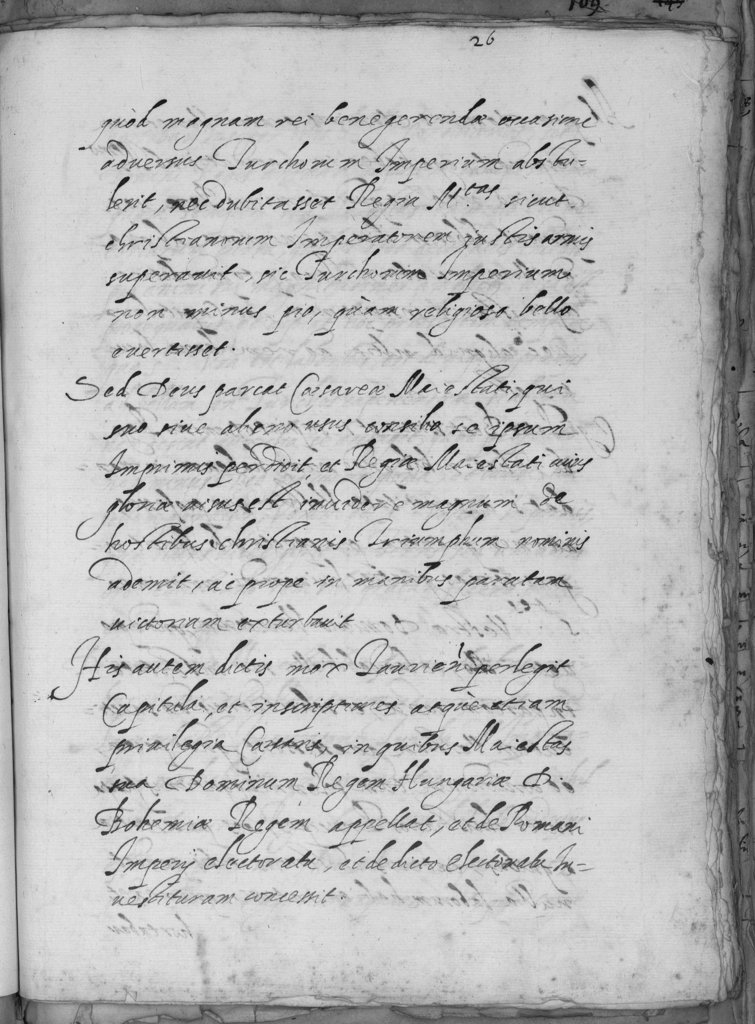 109
26
quòd magnam rei benegerendæ occasionē
adversus Turchorum Imperium abstu-
lerit, nec dubitasset Regia M.tas sicut
christianorum Imperatorem justis armis
superavit, sic Turchorum Imperium
non minus pio, quàm religioso bello
evertisset.
Sed Deus parcat Cæsareæ Maiestati, qui
suo sive alieno usus consilio se ipsum
Imprimis perdidit et Regiæ Maiestati cuius
gloriæ visus est invidere magnum de
hostibus christianis Triumphum nominis
ademit, ac prope in manibus paratam
victoriam exturbavit
His autem dictis mox Jaurien perlegit
Capitula, et inscriptiones atque etiam
privilegia Cæsaris, in quibus Maiestas
sua Dominum Regem Hungariæ D.
Bohemiæ Regem appellat, et de Romani
Imperij electoratu, et de dicto electoratu In-
vestituram concessit.